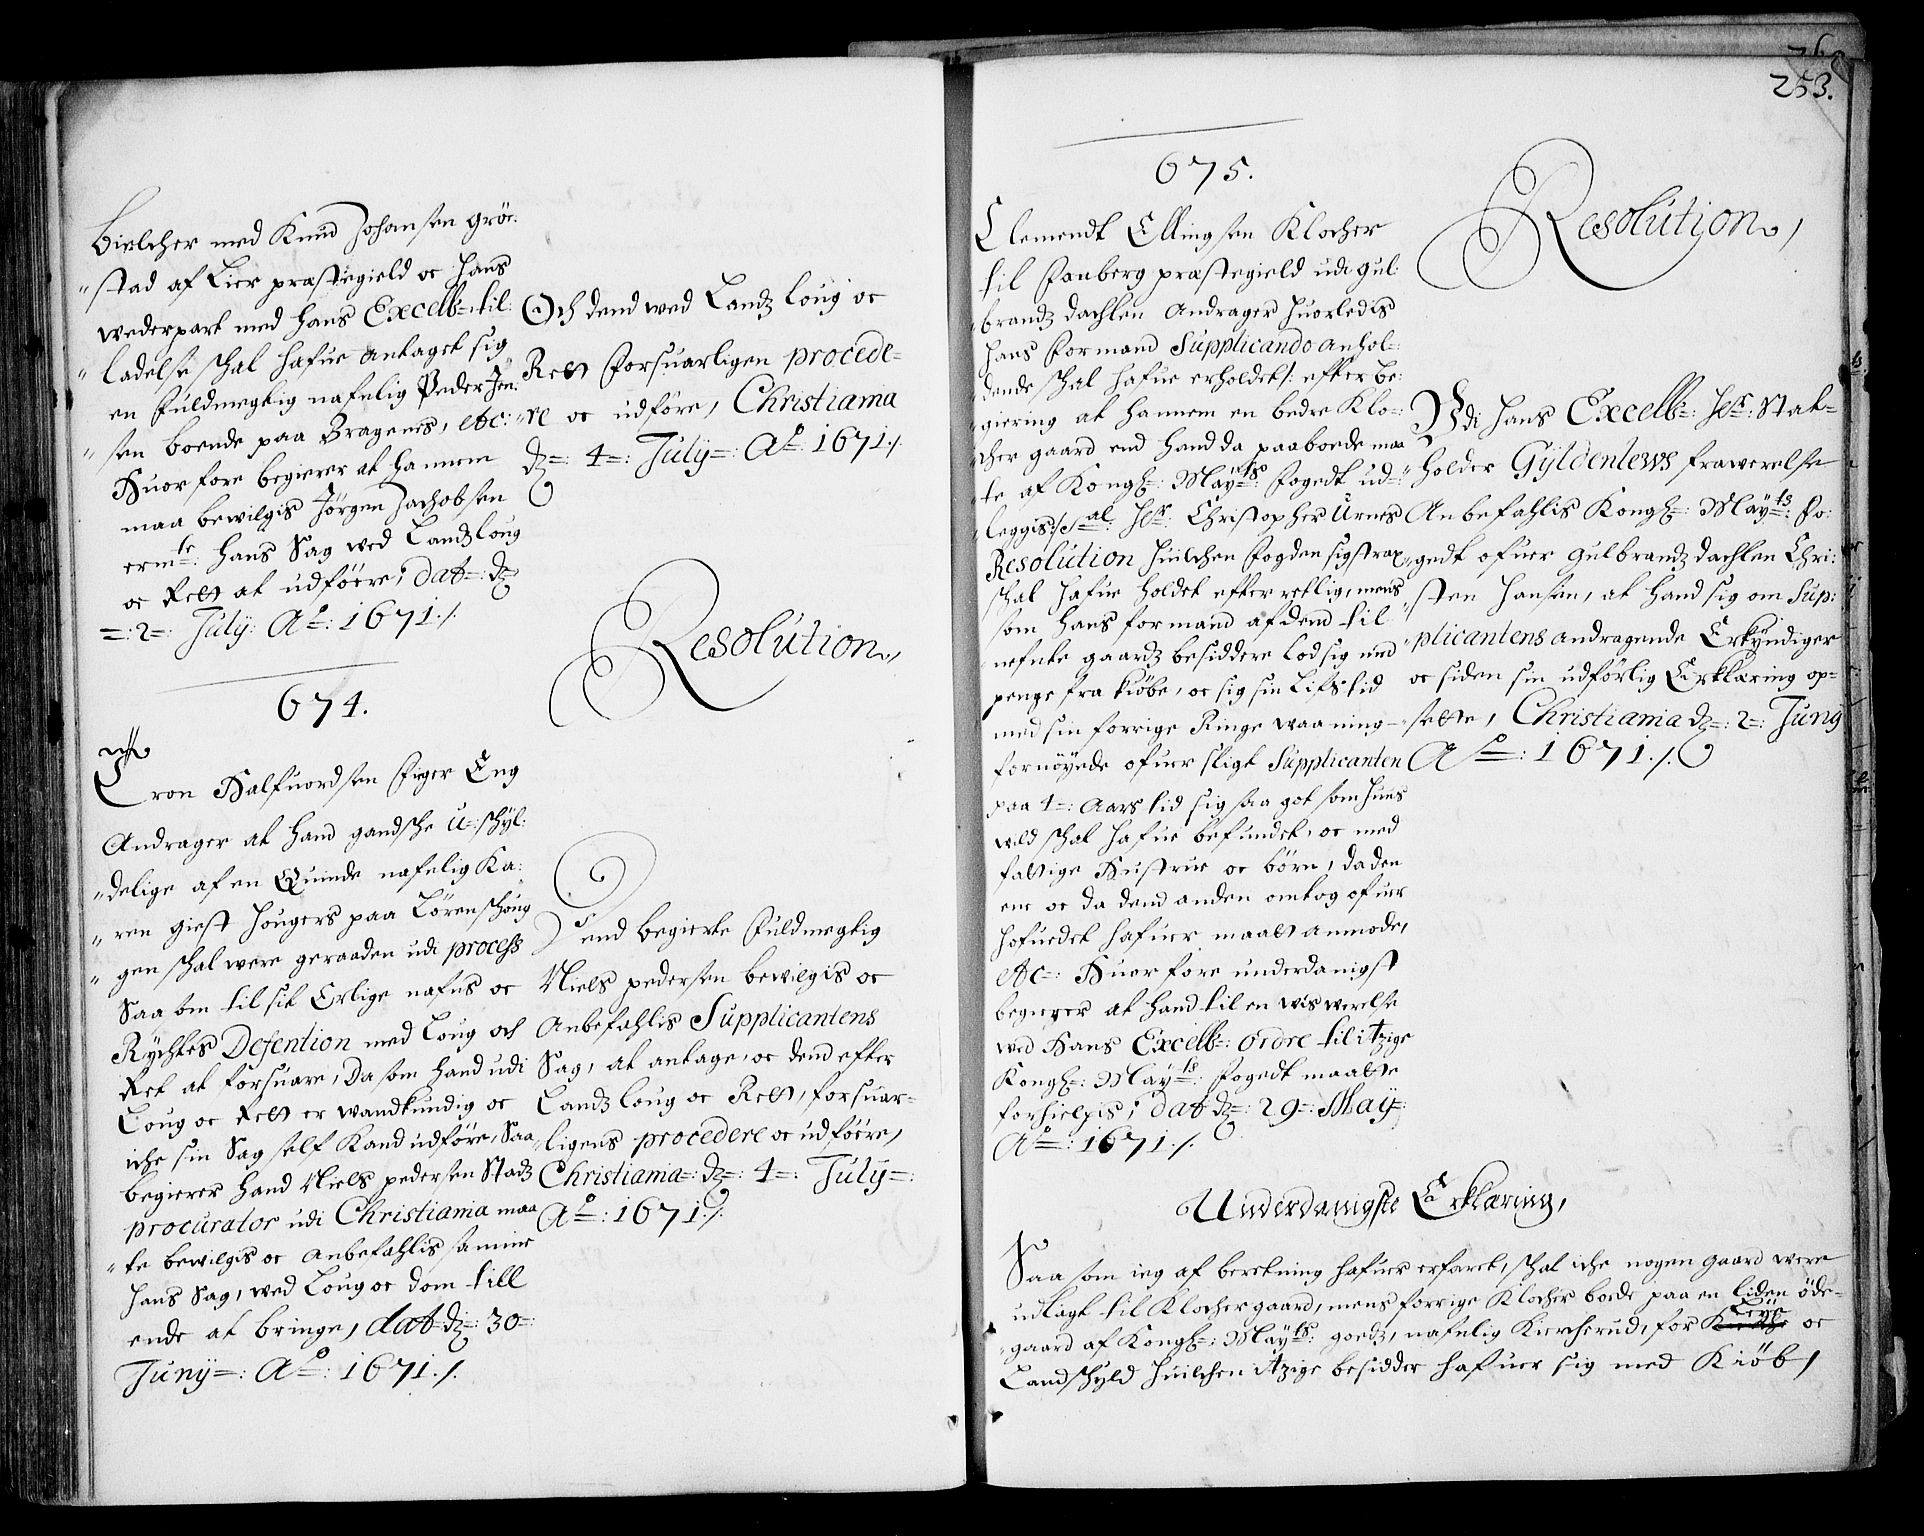 Bielcher med Knud Johansen Gröe:
stad af Lier præstegield oc hans
wederpart med hans Excell: til:
ladelse schal hafue antaget sig
en Fuldmegtig nafnlig Peder Jen:
sen boende paa Bragenes, etc:
Huorfore begierer at hannem
maa bewilgis Jörgen Jachobsen
ermte: hans Sag wed Landzloug
oc Rett at udföere, dat: dz
=: 2=: Julij: Ao: 1671 ./.
Och dend wed Landz loug oc
Rett Forsuarligen procede=
re oc udföre, Christiania
dz=: 4=: July=: Ao: 1671 ./.
674.
Resolution,
Tron Halfuordsen Eng
Andrager at hand gandsche U=schyl:
delige af en Quinde nafnlig Ka:
ren giest Hougers paa Lörenschoug
gen schal were geraaden udi process
Saa som til sit Erlige nafns oc
Rychtes Defention med Loug och
Ret at forsuare, Da som hand udi
Loug oc Rett er wandkundig oc
iche sin Sag self kand udföre, Saa
begierer hand Niels pedersen Stadz
procurator udi Christiania maa
te bewilgis oc anbefahlis samme
hans Sag, wed Loug oc dom till
ende at bringe, dat dz=: 30=:
Junij=: Ao=: 1671 ./.
Dend begierte Fuldmegtig
Niels pedersen bewilgis oc
Anbefahlis Supplicantens
Sag, at antage, oc dend efter
Landz loug oc Rett, forsuar=
ligens procedere oc udföere,
Christiania=: dz=: 4=: Julij=:
Ao=: 1671 ./.
253.
675.
Clemendt Ellingsen Klocher
til Faaberg præstegield udi Gul:
brandz dachlen Andrager huorledis
hans Formand Supplicando anhol=
dende schal hafue erholdet/: efter be:
giering at hannem en bedre Klo=:
cher gaard end hand da paaboede maa
te af Kongl=: Mayts: Fogedt ud=:
leggis:/ Sal: Hr: Christopher Urnes
Resolution huilchen Fogden sig strax
schal hafue holdet efterretlig, mens
som hans formand af dend til
nefnte gaardz besiddere lod sig med
penge fra kiöbe, oc sig sin Lifs tid
med sin forrige Ringe waaning
fornöyede ofuer sligt Supplicanten
paa 4=: Aars tid sig saa got som huus
wild schal hafue befundet, oc med
fattige Hustrue oc börn, da den
ene oc da dend anden omtog ofuer
hofuedet hafuer maatt anmode,
etc=: Huorfore underdanigst
begierer at hand til en wis werelse
wed Hans Excell=: Ordre til itzige
Kongl=: Mayts=: Fogedt maatte
forhielpis, dat dz=: 29=: May=:
Ao=: 1671 ./.
Resolution,
Udi Hans Excell=: Hr: Stat=
holder Gyldenlews frawerelse
Anbefahlis Kongl=: Mayts: Fo:
gedt ofuer Gulbrandz dachlen Chri:
sten Hansen, at hand sig om Sup:
plicantens andragende Erkyndiger
oc siden sin udförlig Erklæring op=
sette, Christiania dz=: 2=: Juny
Ao=: 1671 ./.
Underdanigste Erklæring,
Saa som ieg af beretning hafuer erfaret, schal iche nogen gaard were
udlagt til Klochergaard, mens forrige Klocher boede paa en liden öde=
gaard af Kongl=: Mayts: goedz, nafnlig Kiercherud, for Leye oc
Landschyld huilchen itzige besidder hafuer sig med Kiöb,